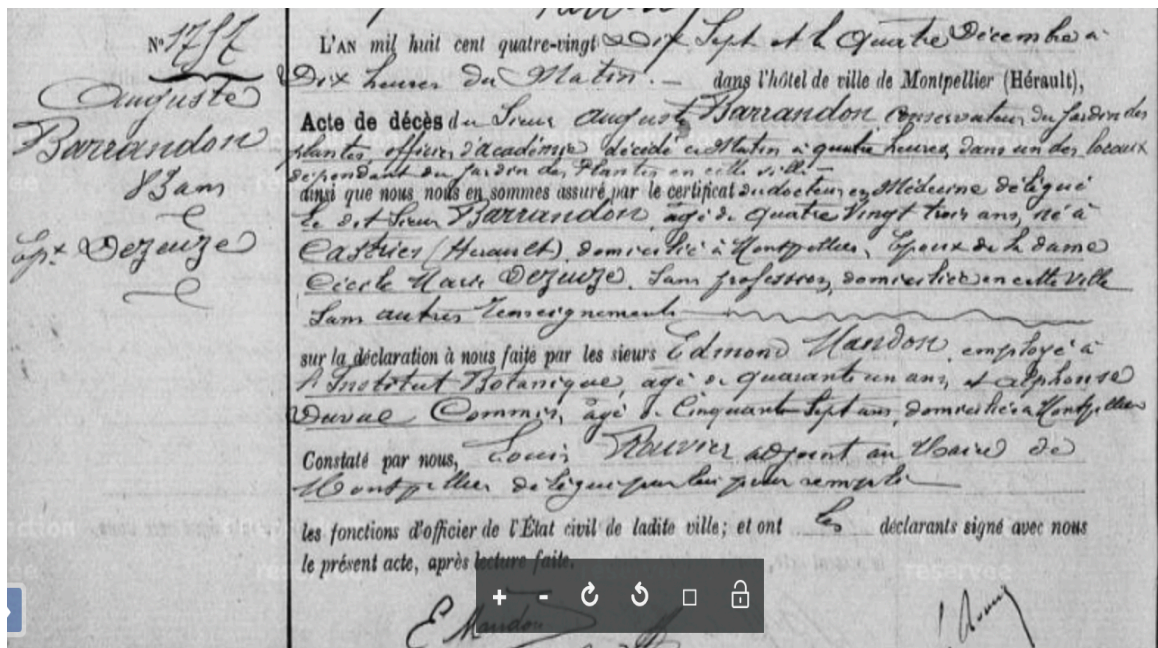 N° 1757
Auguste
Barrandon
83 ans
Ep.x Dezeuze
L'AN mil huit cent quatre-vingt Dix Sept et le Quatre Décembre à
Dix heures du Matin. — dans l'hôtel de ville de Montpellier (Hérault),
Acte de décès du Sieur Auguste Barrandon conservateur du Jardin des
plantes, officier d'académie décédé ce Matin à quatre heures, dans un des locaux
dépendant du Jardin des Plantes en cette ville —
ainsi que nous nous en sommes assuré par le certificat du docteur en Médecine délégué
le dit Sieur Barrandon, agé de quatre Vingt trois ans, né à
Castries (Herault), domicilié à Montpellier, Epoux de la dame
Cécile Marie Dezeuze, Sans profession, domiciliée en cette Ville
Sans autres renseignements
sur la déclaration à nous faite par les sieurs Edmond Mandon, employé à
l'Institut Botanique, agé de quarante un ans, et alphonse
Duval Commis, âgé de Cinquante Sept ans, domiciliés à Montpellier
Constaté par nous, Louis Rouvier adjoint au Maire de
Montpellier délégué par lui pour remplir
les fonctions d'officier de l'État civil de ladite ville; et ont les déclarants signé avec nous
le présent acte, après lecture faite.
E Mandon